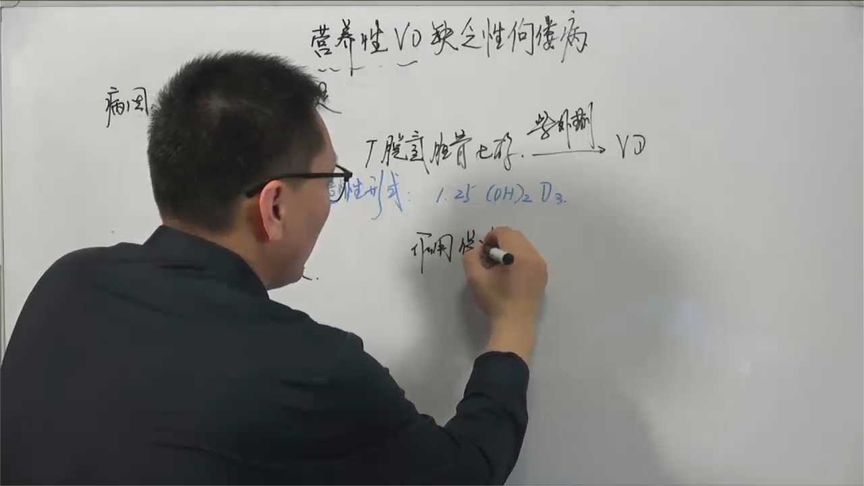 营养性VD缺乏性佝偻病
病因
7脱氢胆骨七醇 紫外线 VD
性形式: 1.25 (OH)₂ D₃.
作用